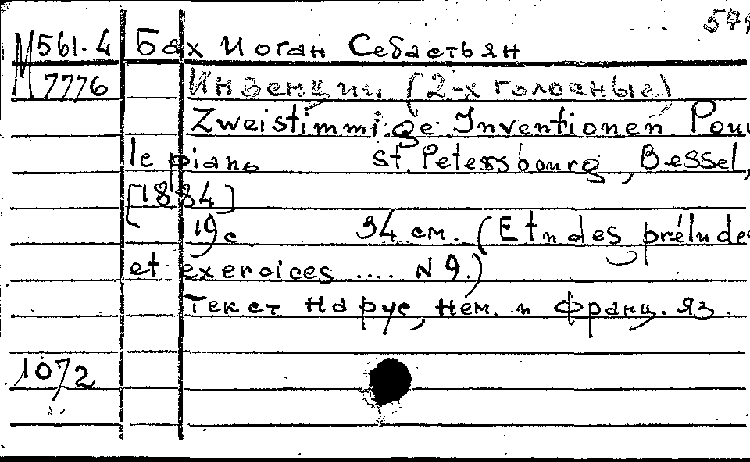 579
М561.4 Бах Иоган Себастьян
7776 Инвенции (2-х голосные)
Zweistimmige Inventionen Pour
le piano st. Petersbourg, Bessel,
[1884]
19с 34 см. (Etudes préludes
et exercices .... N 9.)
Текст на рус, нем. и франц. яз.
1072